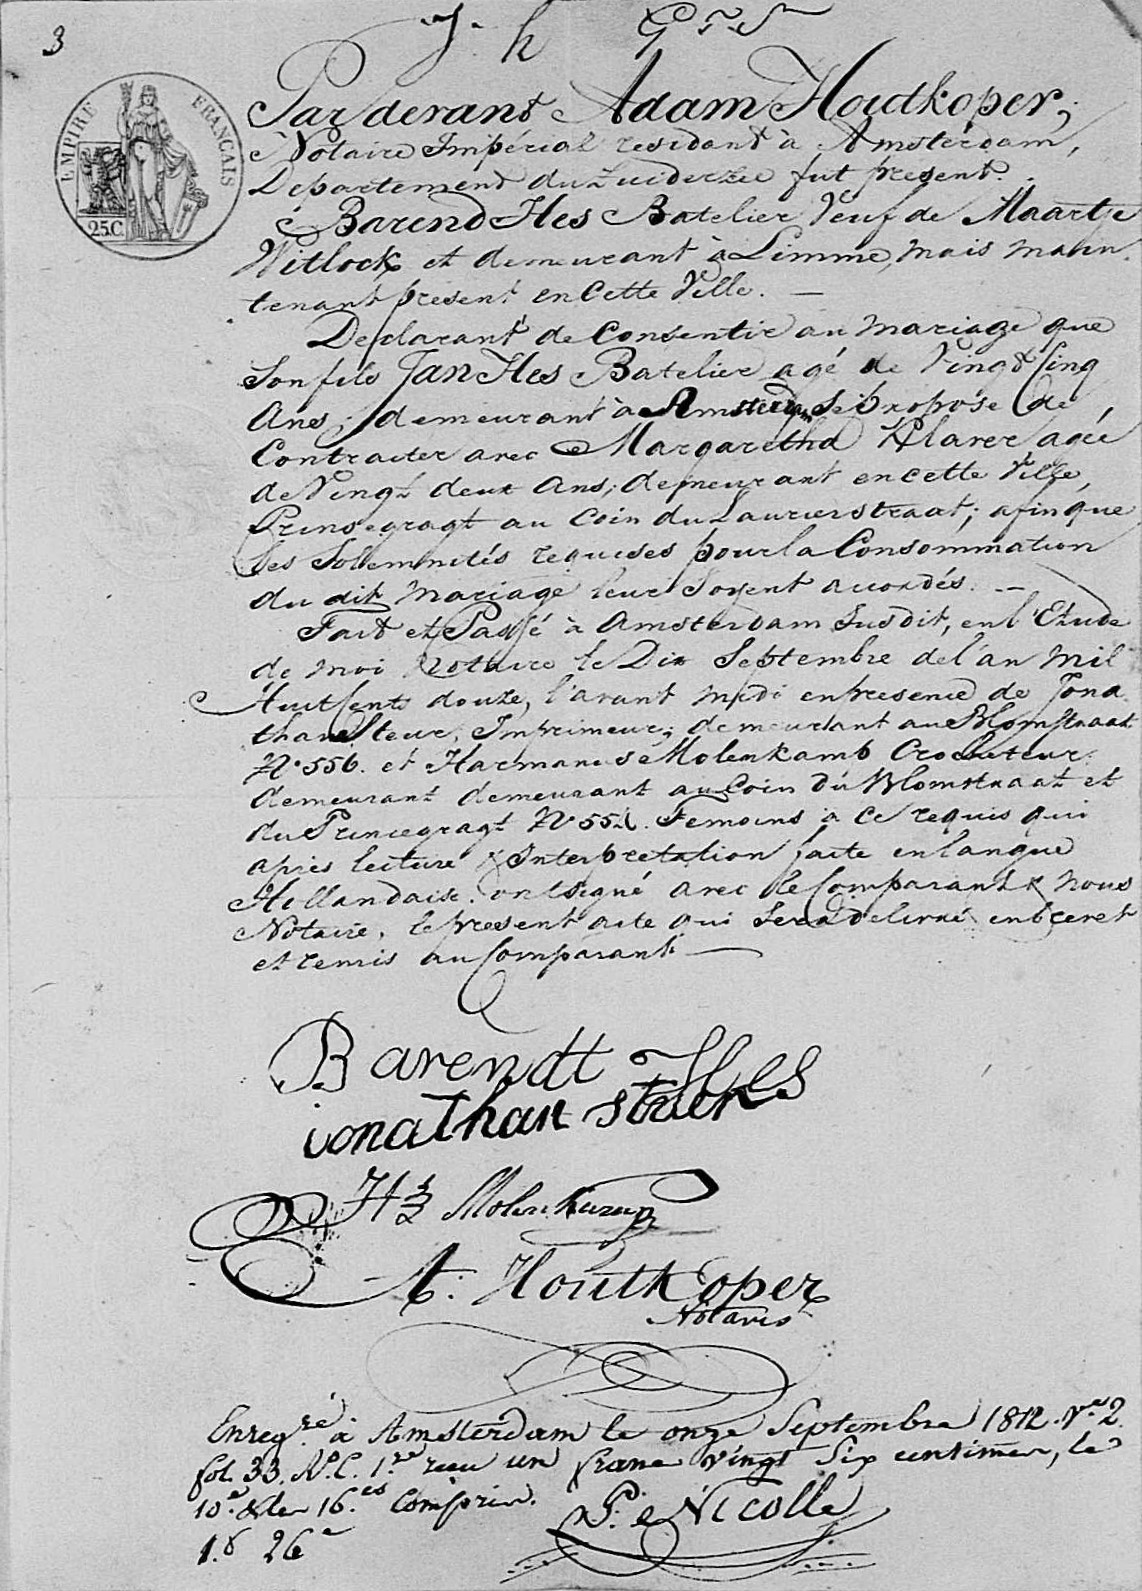 3
EMPIRE FRANÇAIS
25.C
Par devant Adam Houtkoper,
Notaire Impérial residant à Amsterdam,
Departement du Zuiderzee fut present.
Barend Hes Batelier Veuf de Maartje
Witlock et demeurant à Limme, mais main
tenant present en Cette Ville. —
Declarant de Consentir au mariage que
Son fils Jan Hes Batelier agé de Vingt Cinq
Ans, demeurant à Amsterdam Se propose de
Contracter avec Margaretha Klaver agée
de Vingt deux Ans, demeurant en cette Ville,
Prinsegragt au Coin du Laurierstraat; afin que
les Solemnités requises pour la Consommation
du dit Mariage leur Soyent accordés. —
Fait et Passé à Amsterdam Susdit, en l'Etude
de moi Notaire le Dix Septembre de l'an Mil
Huit Cents douze, l'avant Midi en presence de Jona
than Steur, Imprimeur; demeurant au Blomstraat
No. 556. et Harmanus Molenkamp
demeurant demeurant au Coin du Blomstraat et
du Princegragt No. Temoins à Ce requis qui
après lecture & Interpretation faite en langue
Hollandaise. ont signé avec le Comparant & nous
Notaire, le present acte qui Sera delivré en brevet
et remis au Comparant —
Barendt Hes
ionathan
Hs Molenkamp
A. Houtkoper
Notaris
Enreg.ré à Amsterdam le onze Septembre 1812. Ve. 2
fol. 33. No. C. 1.re recu un franc vingt Six centimes, le
10.e & les 16.es Compris.
P. Nicolle
1.f 26